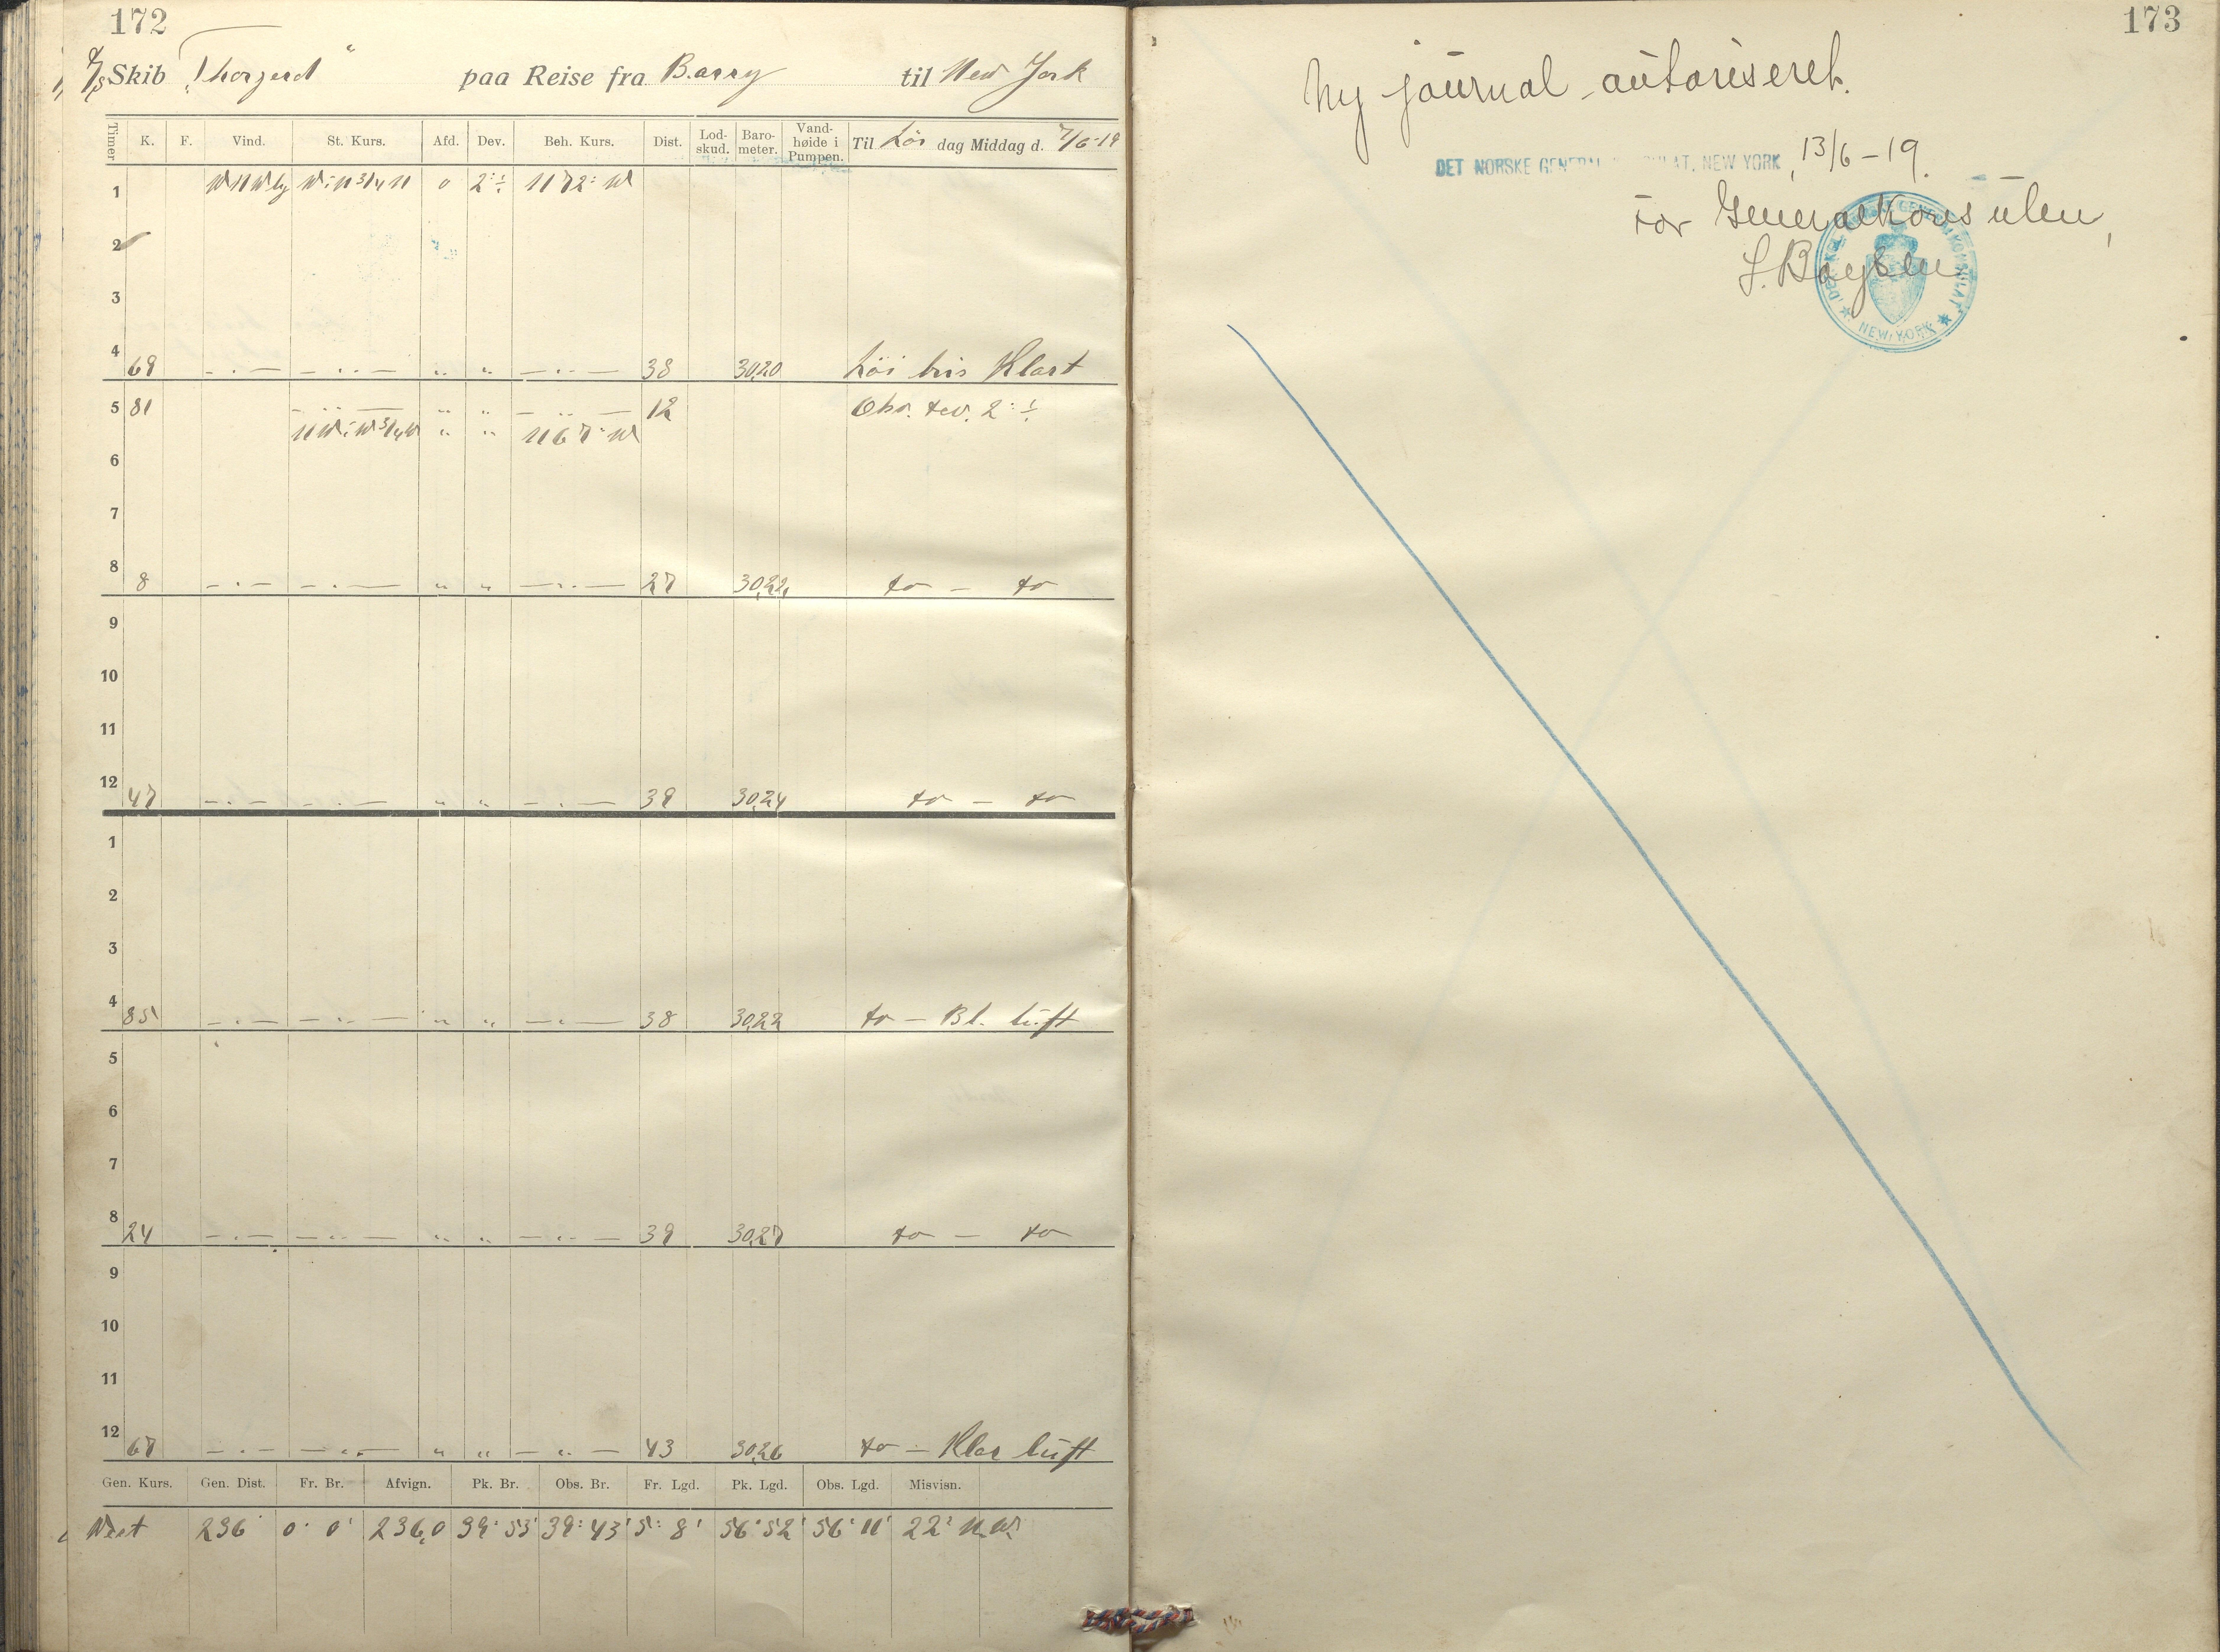 172
D/S Skib „Thorgerd“ paa Reise fra Barry til New York
Timer K. F. Vind. St. Kurs. Afd. Dev. Beh. Kurs. Dist. Lod-skud. Baro-meter. Vand-høide i Pumpen. Til Lör dag Middag d. 7/6-19
1 WNWlig W:N3/4N 0 2°÷ N72°W
2
3
4 69 -"- -"- " " -"- 38 30,20 Löi bris Klart
5 81 -"- " " -"- 12 Obs. dev. 2°÷
NW:W3/4W " " N67°W
6
7
8 8 -"- -"- " " -"- 27 30,22 do - do
9
10
11
12 47 -"- -"- " " -"- 39 30,24 do - do
1
2
3
4 85 -"- -"- " " -"- 38 30,22 do - Bl. luft
5
6
7
8 24 -"- -"- " " -"- 39 30,27 do - do
9
10
11
12 67 -"- -"- " " -"- 43 30,26 do - Klar luft
Gen. Kurs. Gen. Dist. Fr. Br. Afvign. Pk. Br. Obs. Br. Fr. Lgd. Pk. Lgd. Obs. Lgd. Misvisn.
West 236' 0° 0' 236,0 39° 53' 39° 43' 5° 8' 56° 52' 56° 11' 22° N.W.
173
Ny journal autoriseret.
DET NORSKE GENERALKONSULAT, NEW YORK, 13/6-19.
For Generalkonsulen,
S. Boysen
NEW YORK